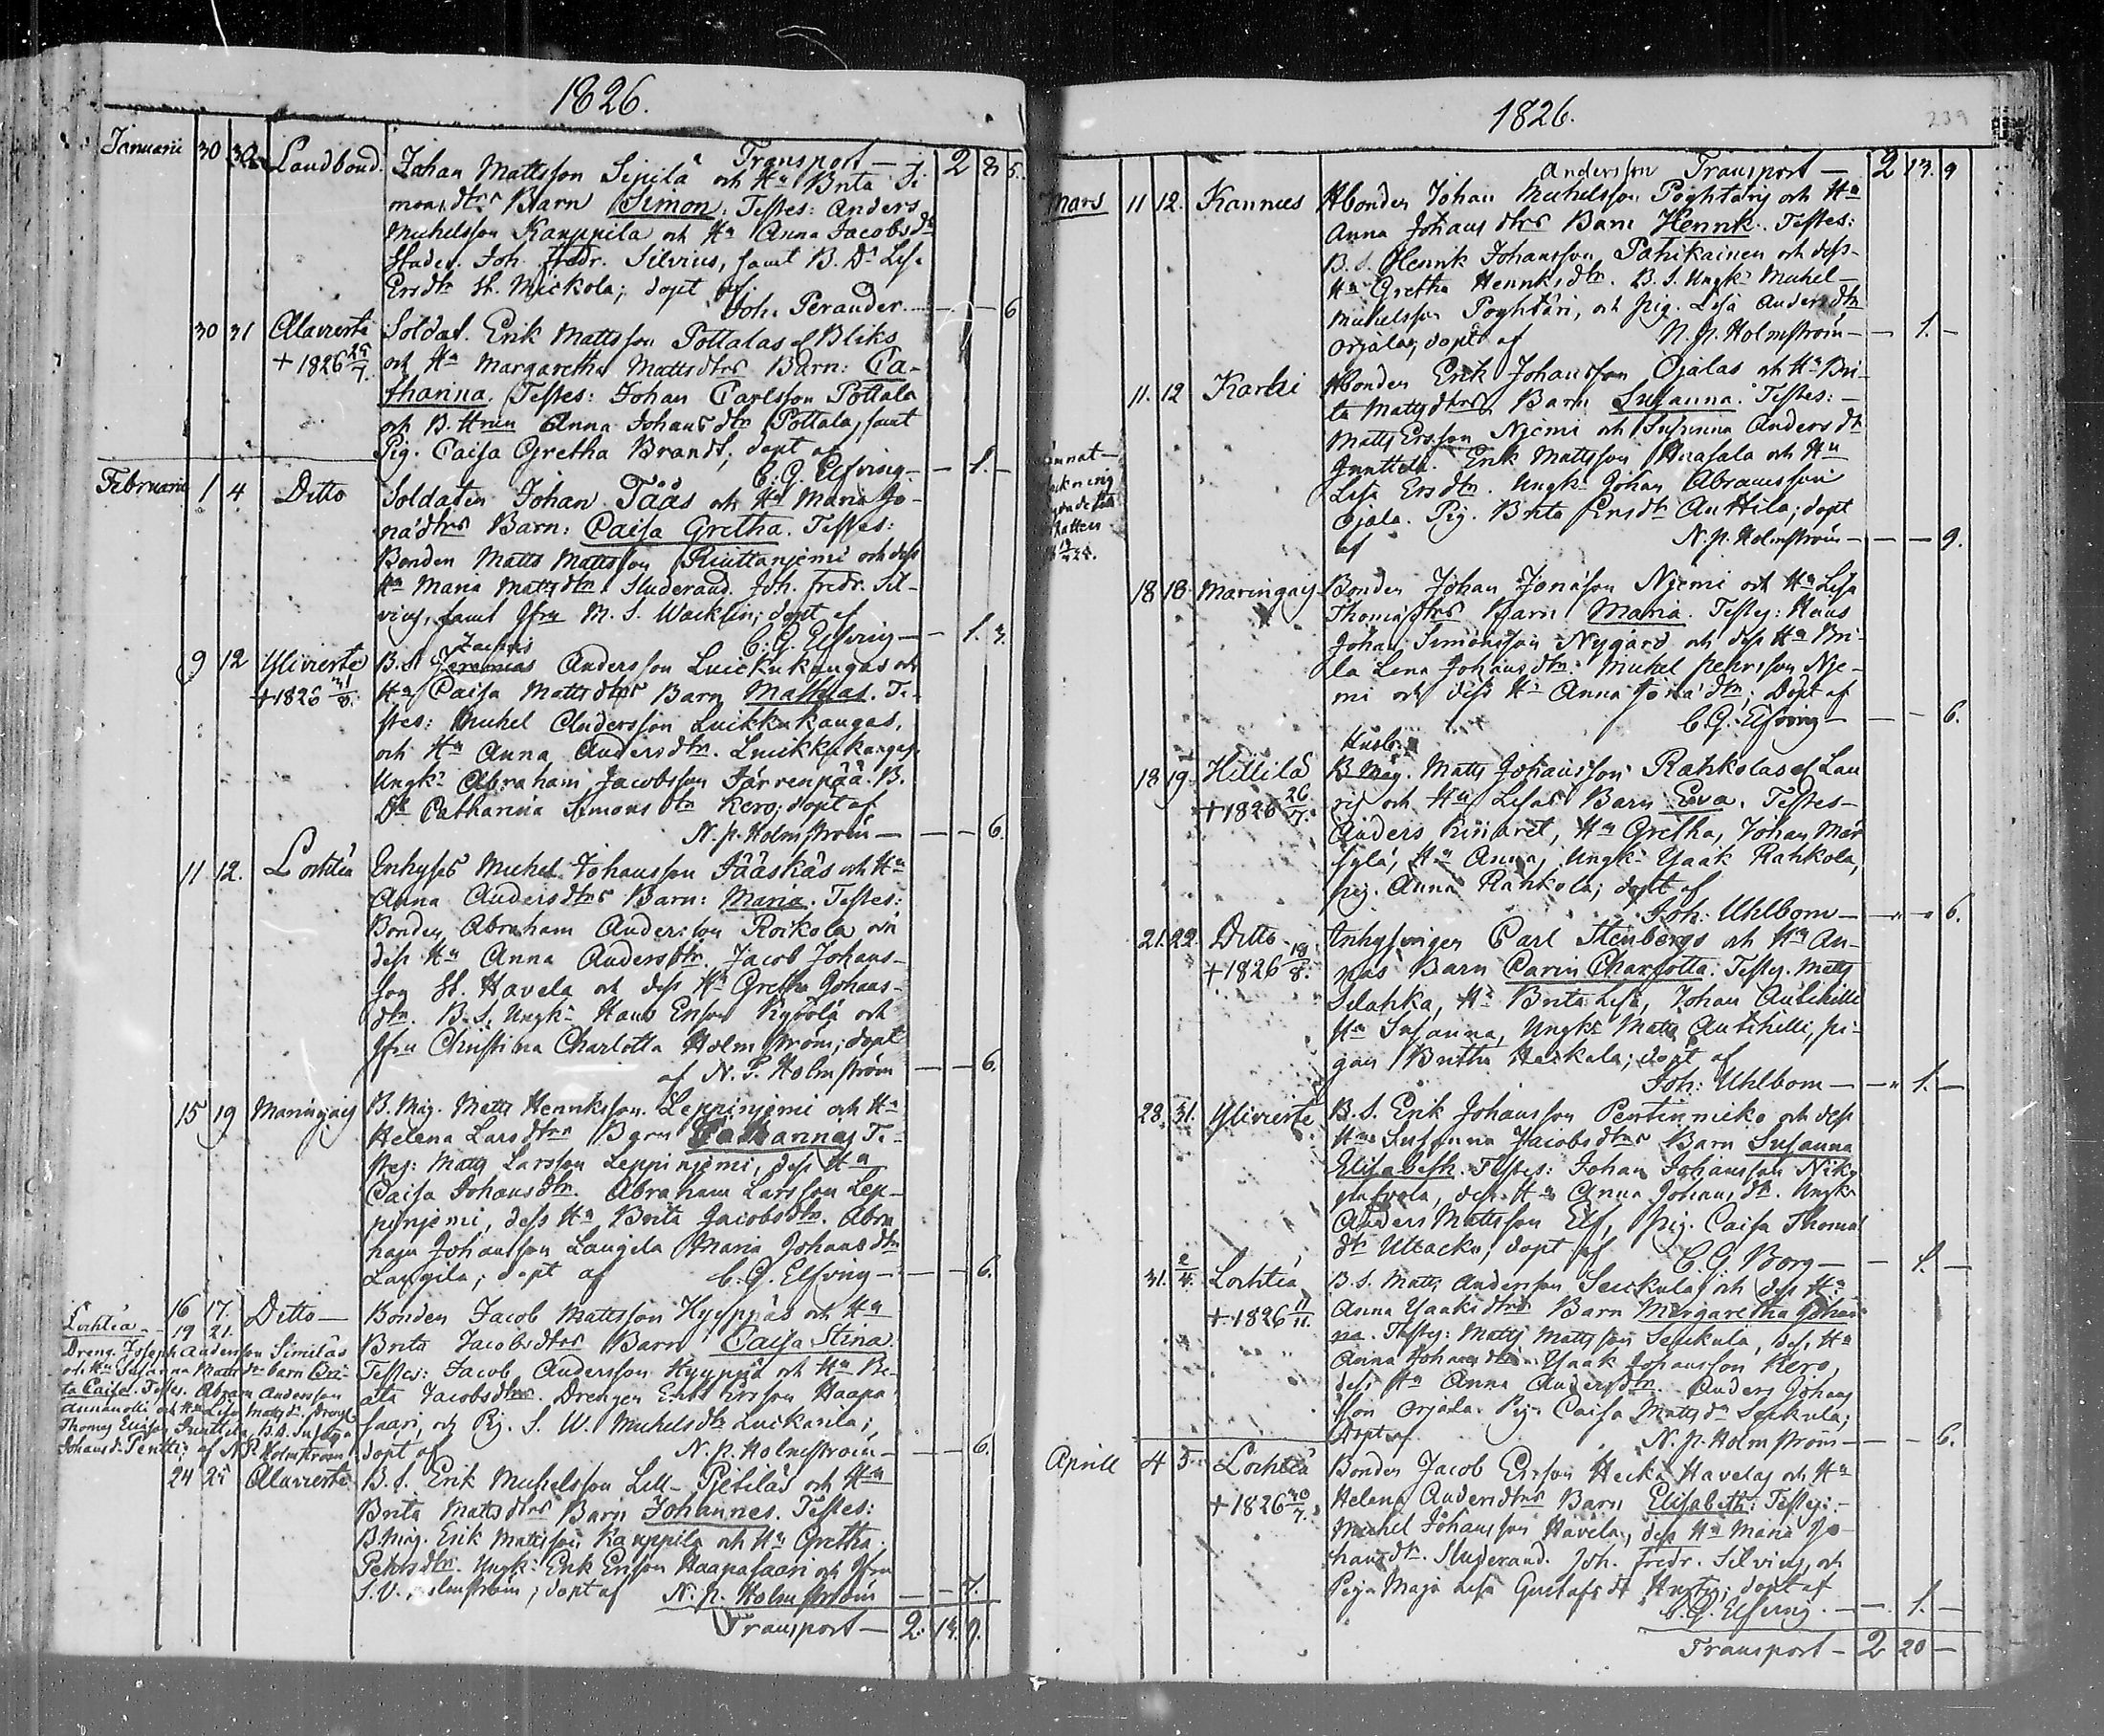 1826.
Transport — 2 8 5.
Januarii 30 30 Landbond. Johan Mattsson Sipilä och Hu Brita Si-
monsdtrs Barn Simon. Testes: Anders
Michelsson Kauppila och Hu Anna Jacobsdr
Studer. Joh. Fredr. Silvius, samt B. Dr Lisa
Ersdtr St. Mickola; döpt af
Joh. Perander — — 6
30 31 Alavieste Soldat. Erik Mattsson Pottalas el Bliks
+ 1826 25/7. och Hu Margaretha Mattsdtrs Barn: Ca-
tharina. Testes: Johan Carlsson Pottala
och B. Hrun Anna Johansdtr Pottala, samt
Pig. Caisa Gretha Brandt; döpt af
C. G. Elfving — — 1. —
Februarii 1 4 Ditto Soldaten Johan Tääs och Hu Maria Jo-
nädtrs Barn: Caisa Gretha. Testes:
Bonden Matts Mattsson Riuttanjemi och dess
Hu Maria Mattsdtr Studerand. Joh. Fredr. Sil-
vius, samt Jfru M. S. Wacklin; döpt af
C. G. Elfving — — 1. 3.
Zachris
9 12 Ylivieste B. S. Jeremias Andersson Luickukangas och
+ 1826 31/8. Hu Caisa Mattsdtrs Barn Mathias. Te-
stes: Michel Andersson Luikkukangas,
och Hu Anna Andersdtr. Luickukangas
Ungk. Abraham Jacobsson Järvenpää. B.
Dr Catharina Simonsdtr Kero; döpt af
N. P. Holmström — — — 6.
11 12. Lochteå Inhyses Michel Johansson Jääskäs och Hu
Anna Andersdtrs Barn: Maria. Testes:
Bonden Abraham Andersson Roikola och
dess Hu Anna Andersdtr. Jacob Johans-
son St. Havela och dess Hu Gretha Johans-
dtr. B. S. Ungk. Hans Ersson Kyrölä och
Jfru Christina Charlotta Holmström; döpt
af N. P. Holmström — — 6.
15 19 Maringais B. Måg. Matts Henriksson Leppinjemi och Hu
Helena Larsdtrs Barn Catharina; Te-
stes: Matts Larsson Leppinjemi, dess Hu
Caisa Johansdtr. Abraham Larsson Lep-
pinjemi, dess Hu Brita Jacobsdtr. Abra
ham Johansson Laugila Maria Johansdtr
Laugila; döpt af C. G. Elfving — — — 6.
16 17. Ditto — Bonden Jacob Mattsson Hyyppäs och Hu
Brita Jacobsdtrs Barn Caisa Stina.
Testes: Jacob Andersson Hyyppä och Hu Be-
ata Jacobsdtr. Drengen Erik Ersson Haapa-
saari, och Pig. S. W. Michelsdtr Luckarila;
döpt af N. P. Holmström — — — 6.
Lochteå — 19 21.
Dreng. Joseph Andersson Similäs
och Hu Susanna Mattsdtr barn Bri-
ta Caisa. Testes. Abram Andersson
Annanolli och Hu Lisa Mattsdr. Dreng.
Thomas Ericsson Junttila, B. D. Susanna
Johansdr Pentti; af N. P. Holmström
24 25 Alavieste B. S. Erik Michelsson Lill-Pjetiläs och Hu
Brita Mattsdtrs Barn Johannes. Testes:
B. Måg. Erik Mattsson Kauppila och Hu Gretha
Pehrsdtr. Ungk. Erik Ersson Haapasaari och Jfru
S. V. Holmström; döpt af N. P. Holmström — — 7.
Transport — 2. 13. 9.
1826.
239
Andersson Transport — 2 13. 9
Mars 11 12. Kannus Bonden Johan Michelsson Pöyhtäris och Hu
Anna Johansdtrs Barn Henrik. Testes:
B. S. Henrik Johansson Pahikainen och dess
Hu Gretha Henriksdtr. B. S. Ungk. Michel
Michelsson Pöyhtäri, och Pig. Lisa Andersdtr
Orjala; döpt af N. P. Holmström — — 1. —
11. 12 Karlsi Bonden Erik Johansson Ojalas och Hu Bri-
ta Mattsdtrs Barn Susanna. Testes: —
Matts Ersson Njemi och Susanna Andersdtr
Junttila. Erik Mattsson Huasala och Hu
Lisa Ersdtr. Ungk. Johan Abramsson
Ojala. Pig. Brita Ersdtr Anttila; döpt
af N. P. Holmström — — — 9.
18 18. Maringais Bonden Johan Jonasson Njemi och Hu Lisa
Thomasdtrs Barn Maria. Testes: Hans
Johan Simonsson Nygård och dess Hu Bri-
ta Lena Johansdtr. Michel Pehrsson Nje-
mi och dess Hu Anna Jonädtr; Döpt af
C. G. Elfving — — — 6.
Husb.
18 19. Hillilä B. Måg. Matts Johansson Rahkolas el Lau
+ 1826 26/7. ris och Hu Lisas Barn Eva. Testes —
Anders Kinaret, Hu Gretha, Johan Mär
sylä, Hu Anna, Ungk. Isaak Rahkola,
pig. Anna Rahkola; döpt af
Joh: Uhlbom — — — 6.
21. 22. Ditto Inhysingen Carl Stenbergs och Hu An-
+ 1826 18/8. nas Barn Carin Charlotta. Testes. Matts
Selahka, Hu Brita Lisa, Johan Autihilli
Hu Susanna, Ungk. Matts Autihilli, pi-
gan Britha Heikala; döpt af
Joh: Uhlbom — — 1. —
28. 31. Ylivieste B. S. Erik Johansson Pentinmiko och dess
Hu Susanna Jacobsdtrs Barn Susanna
Elisabeth. Testes: Johan Johansson
dess Hu Anna Johansdtr. Ungk.
Anders Mattsson Elf, pig. Caisa Thomas
dtr Uttacko; döpt af C. G. Borg — — 1. —
31. 2/4. Lochteå B. S. Matts Andersson Seikula och dess Hu
+ 1826 11/11. Anna Isaksdtrs Barn Margaretha Johan-
na. Testes: Matts Mattsson Seikula, dess Hu
Anna Johansdtr. Isaak Johansson Kero,
dess Hu Anna Andersdtr. Anders Johans
son Orjala. Pig. Caisa Mattsdr Seikula;
döpt af N. P. Holmström — — — 6.
Aprill 4 5 Lochteå Bonden Jacob Ersson Heikk Havelas och Hu
+ 1826 30/7. Helena Andersdtrs Barn Elisabeth: Testes: —
Michel Johansson Havela, dess Hu Maria Jo-
hansdtr. Studerand. Joh. Fredr. Silvius, och
Piga Maja Lisa Gustafsdr; döpt af
C. G. Elfving. — — 1. —
Transport — 2 20 —